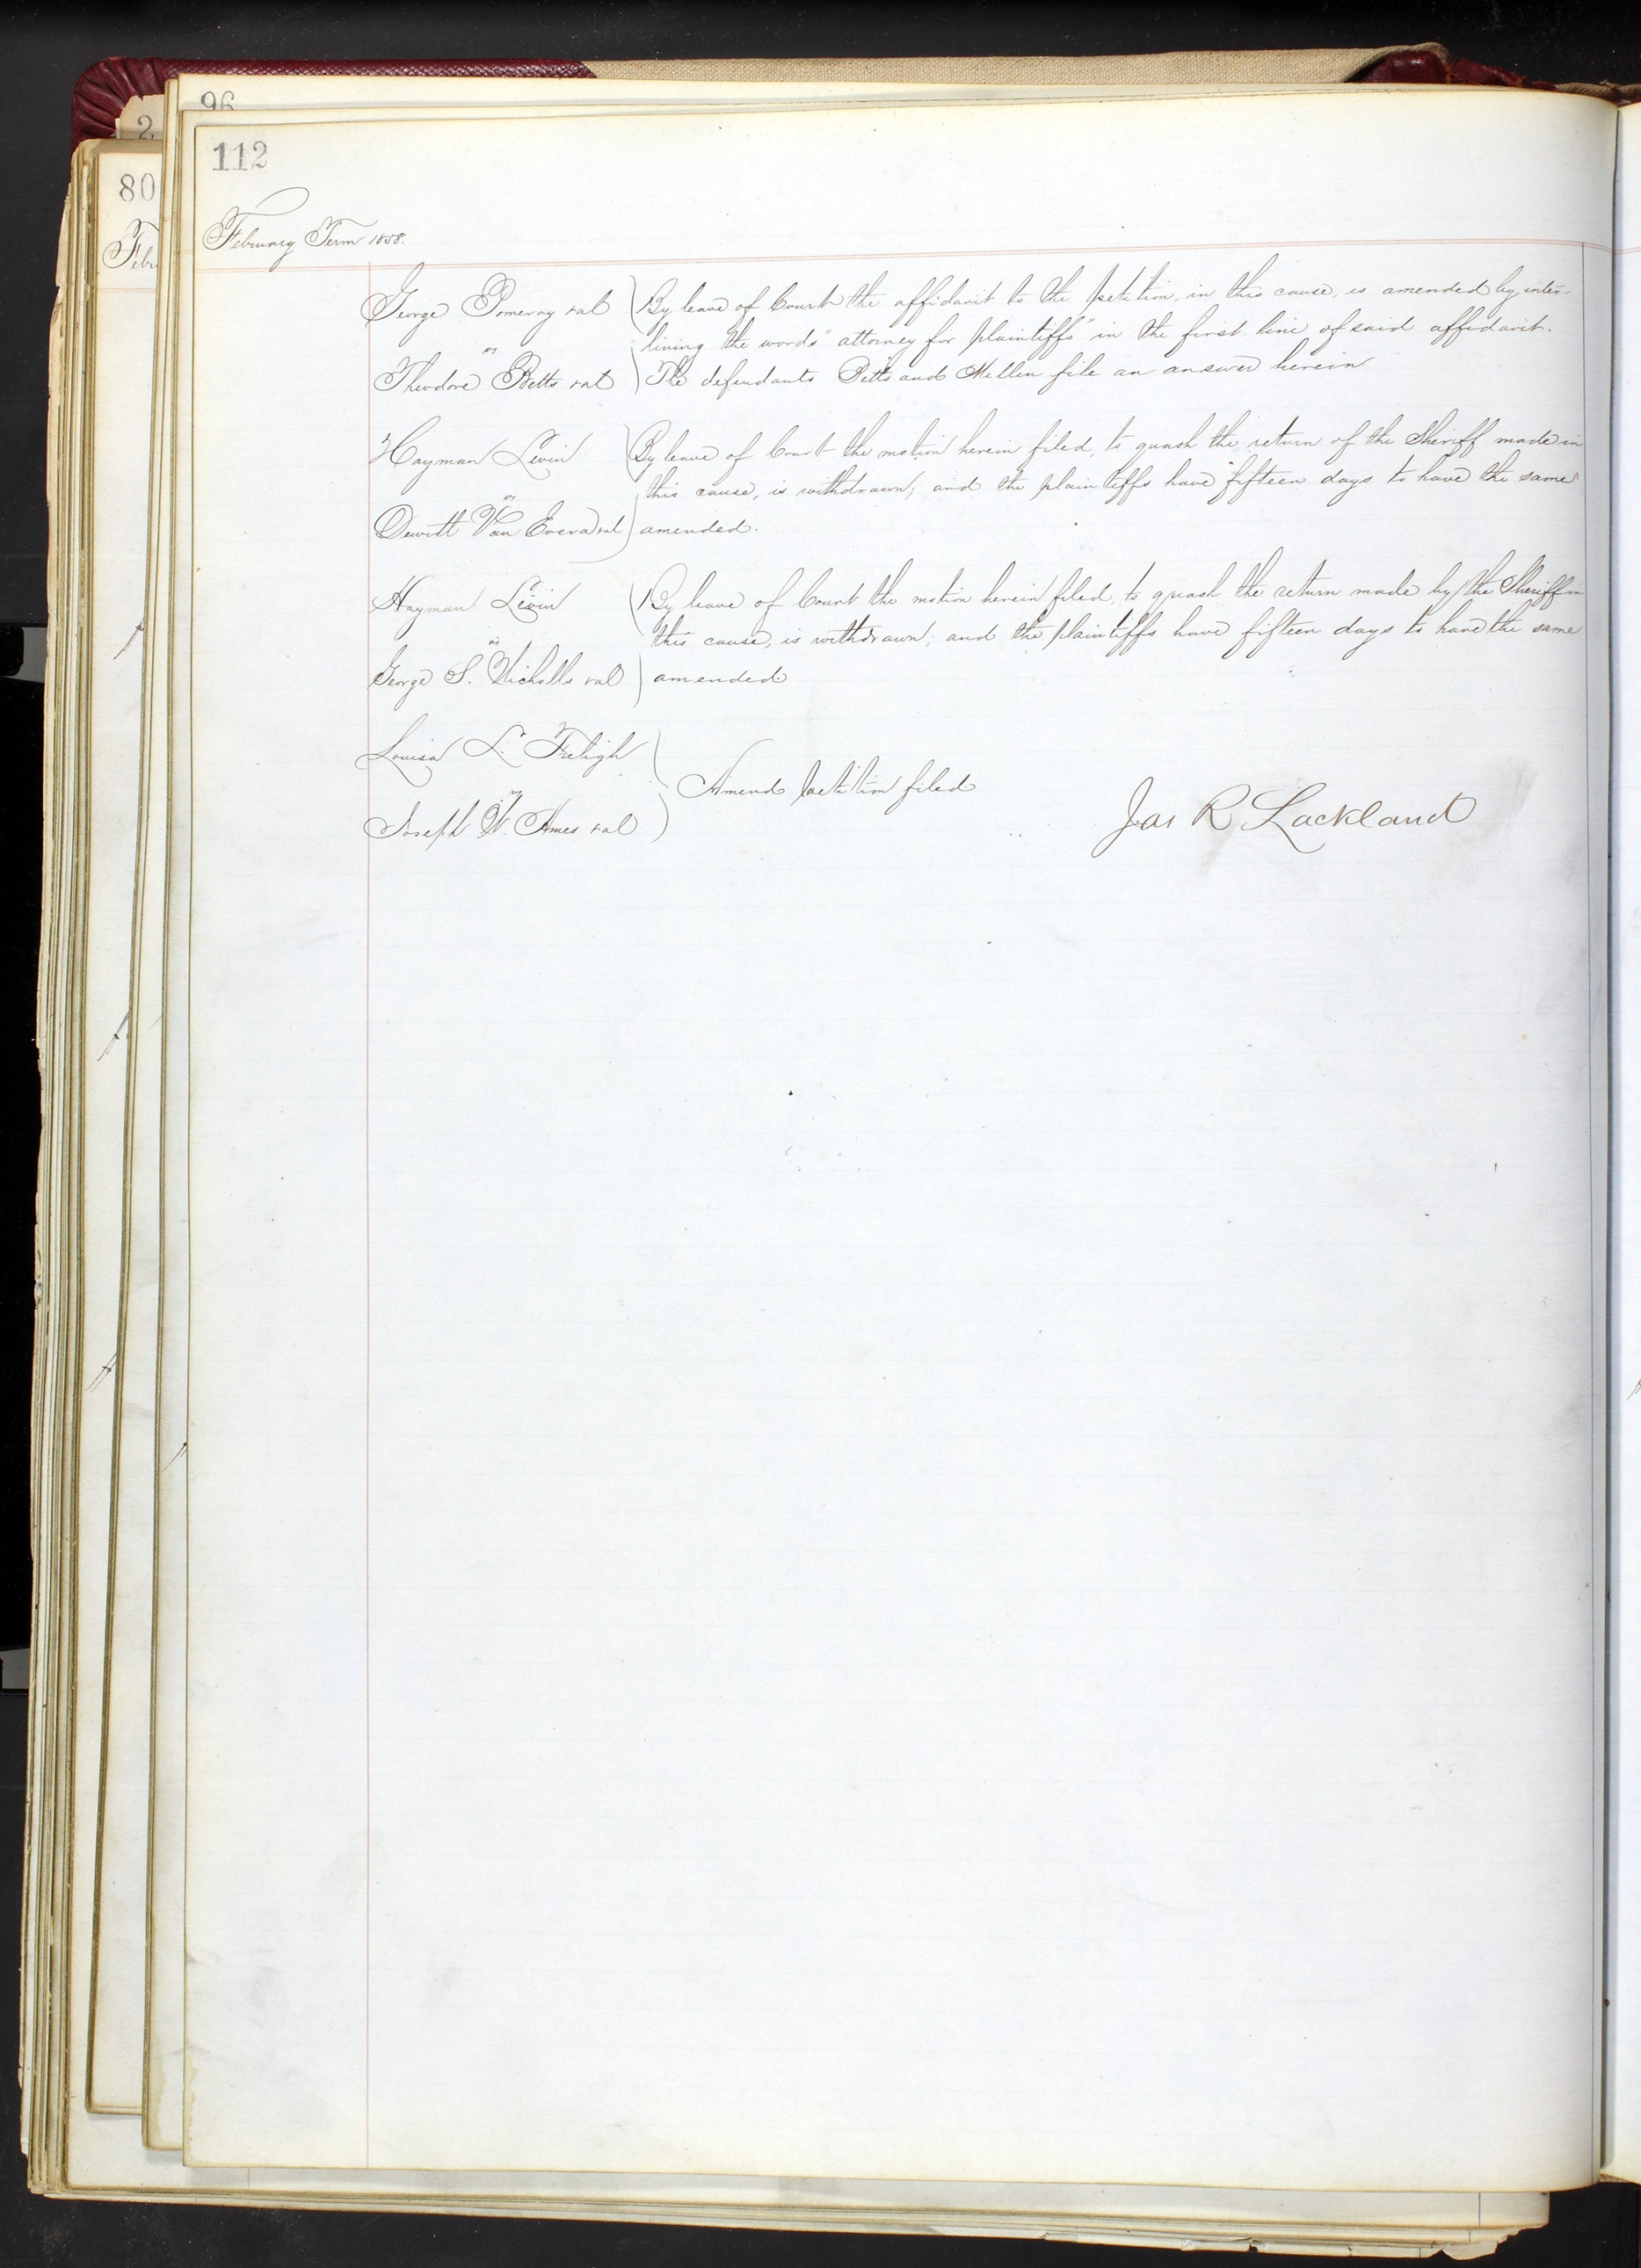 96
2
112
80
Febr
February Term 1858.
George Pomeroy et al ) By leave of Court the affidavit to the petition, in this cause, is amended by inter-
vs ) lining the words "attorney for plaintiffs" in the first line of said affidavit.
Theodore Betts et al ) The defendants Betts and Mellen file an answer herein
Hayman Levin ) By leave of Court the motion herein filed, to quash the return of the Sheriff made in
vs ) this cause, is withdrawn; and the plaintiffs have fifteen days to have the same
Dewitt Van Evera et al ) amended.
Hayman Levin ) By leave of Court the motion herein filed, to quash the return made by the Sheriff in
vs ) this cause, is withdrawn; and the plaintiffs have fifteen days to have the same
George S. Nicholls et al ) amended
Louisa L. Freligh )
vs ) Amend petition filed
Joseph W. Ames et al )
Jas R Lackland